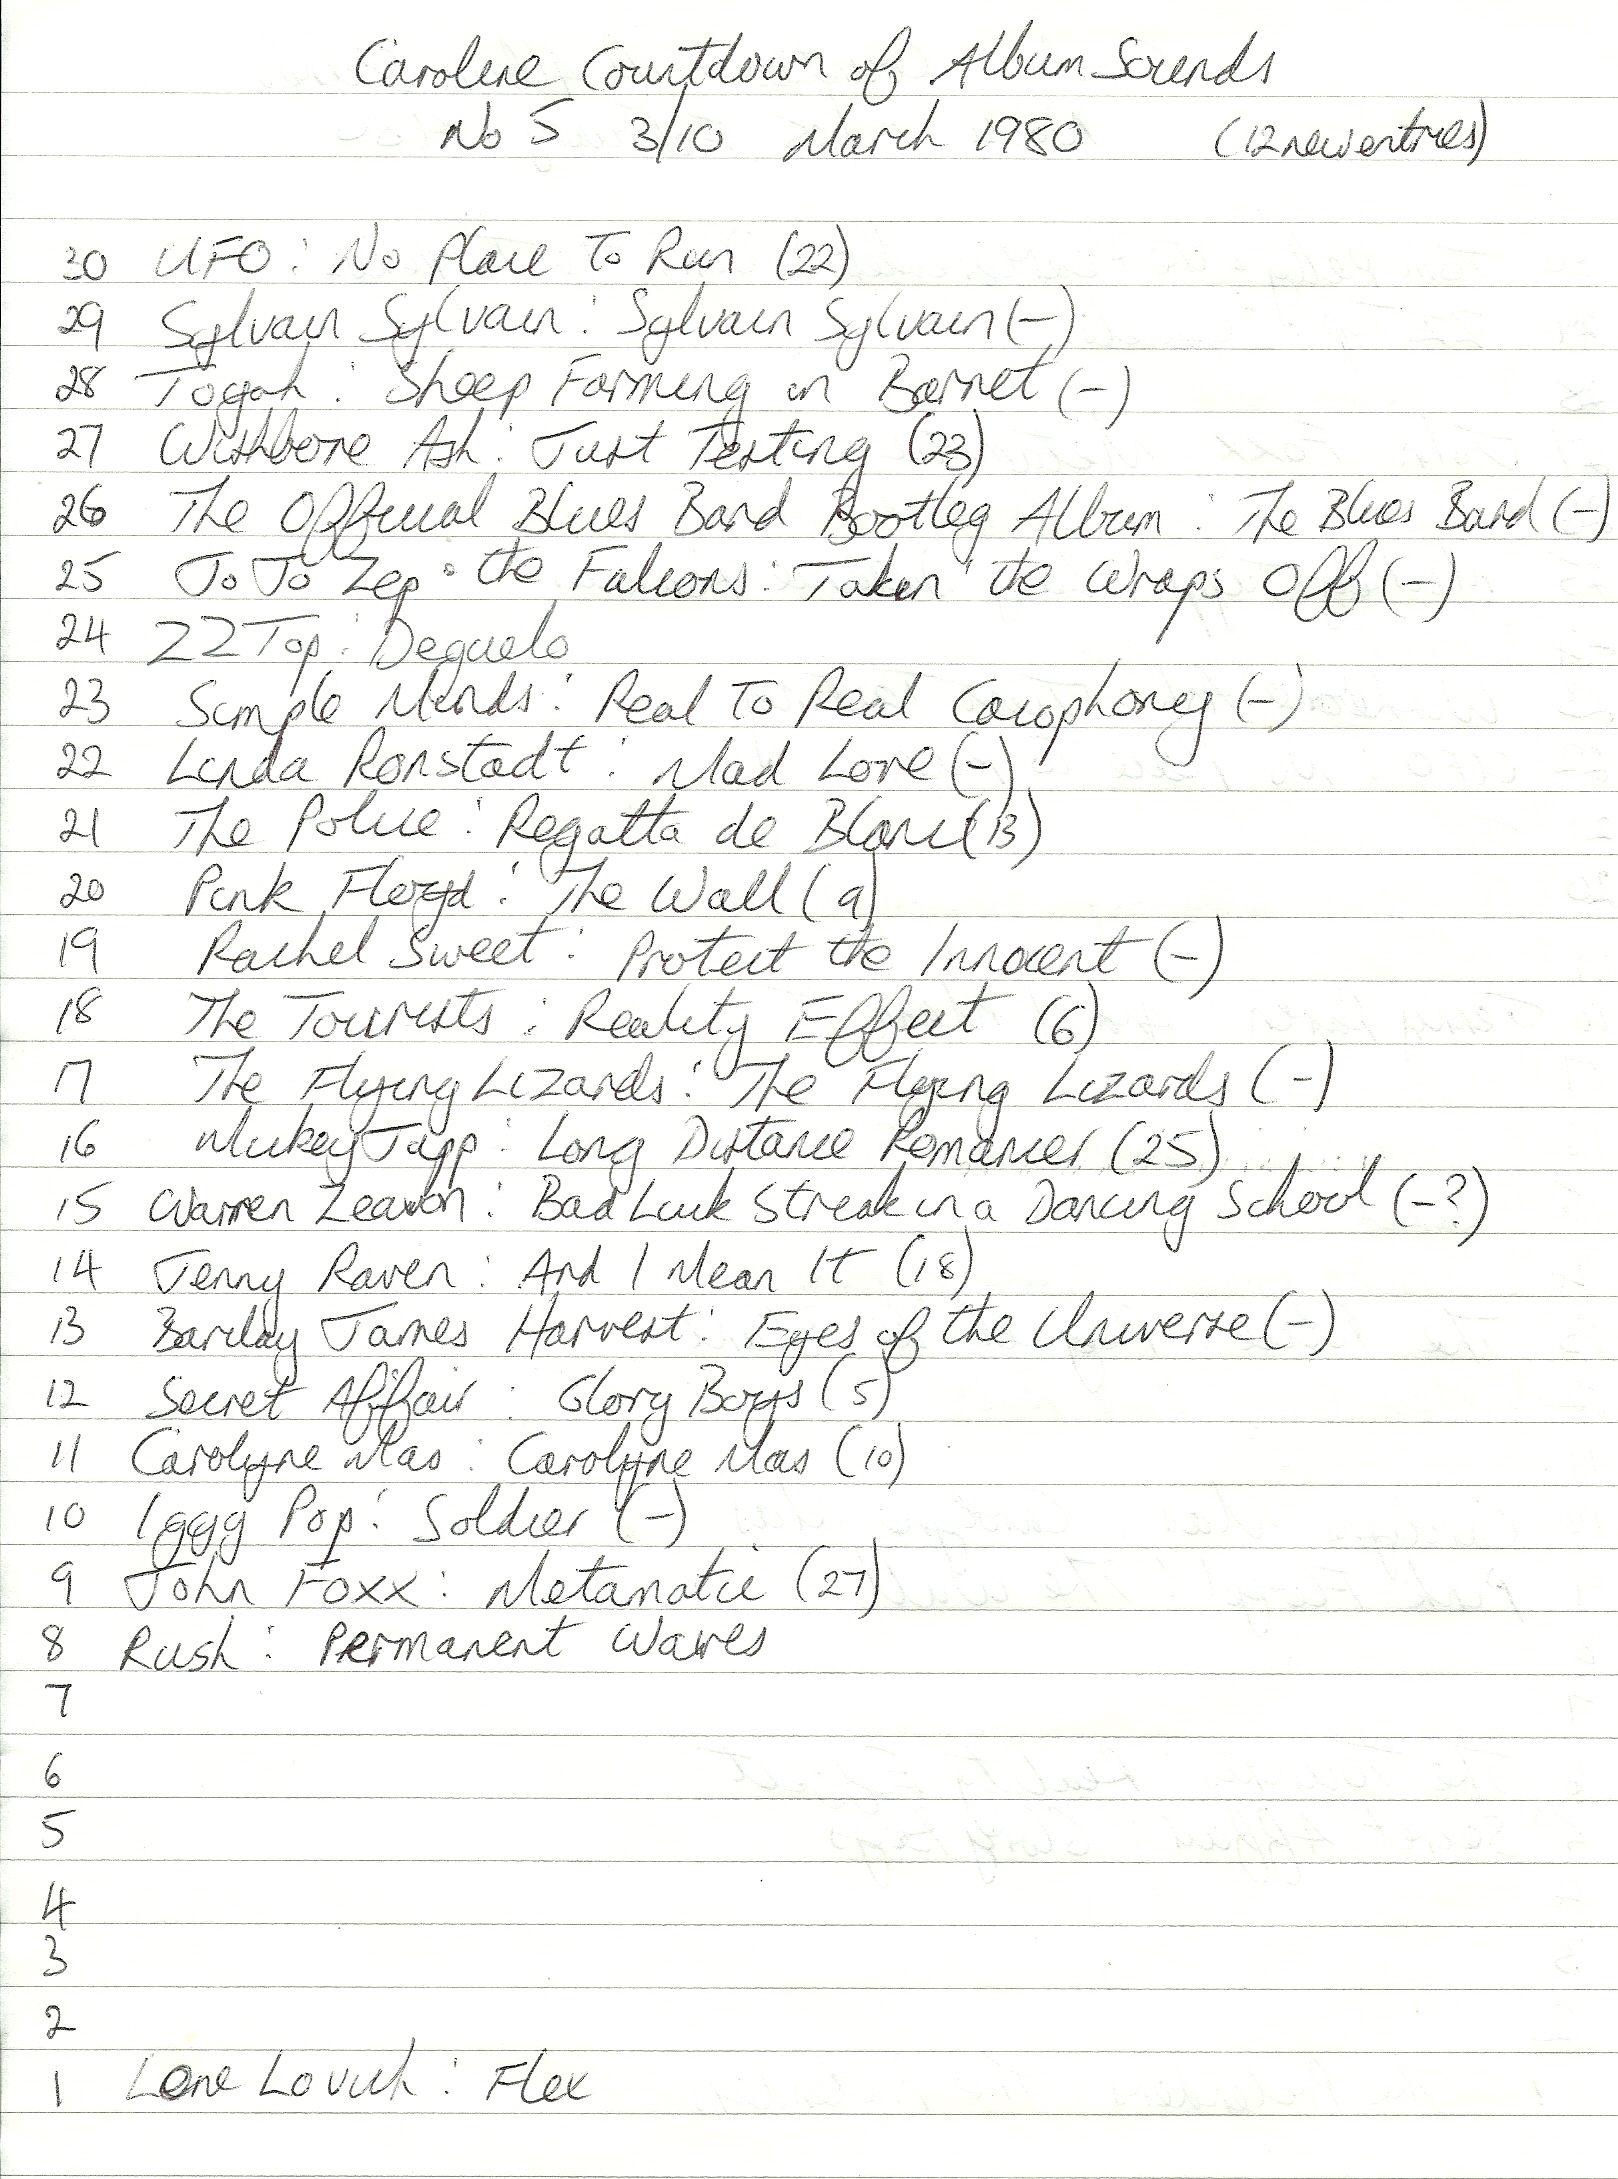 Caroline Countdown of Album Sounds
No 5 3/10 March 1980 (12 new entries)
30 UFO: No Place To Run (22)
29 Sylvain Sylvain: Sylvain Sylvain (-)
28 Toyah: Sheep Farming in Barnet (-)
27 Wishbone Ash: Just Testing (23)
26 The Official Blues Band Bootleg Album: The Blues Band (-)
25 Jo Jo Zep & the Falcons: Taken the Wraps Off (-)
24 ZZ Top: Deguelo
23 Simple Minds: Real To Real Cacophony (-)
22 Linda Ronstadt: Mad Love (-)
21 The Police: Regatta de Blanc (13)
20 Pink Floyd: The Wall (9)
19 Rachel Sweet: Protect the Innocent (-)
18 The Tourists: Reality Effect (6)
17 The Flying Lizards: The Flying Lizards (-)
16 Mickey Jupp: Long Distance Romancer (25)
15 Warren Zeavon: Bad Luck Streak in a Dancing School (-?)
14 Jenny Raven: And I Mean It (18)
13 Barclay James Harvest: Eyes of the Universe (-)
12 Secret Affair: Glory Boys (5)
11 Carolyne Mas: Carolyne Mas (10)
10 Iggy Pop: Soldier (-)
9 John Foxx: Metamatic (27)
8 Rush: Permanent Waves
7
6
5
4
3
2
1 Lene Lovich: Flex